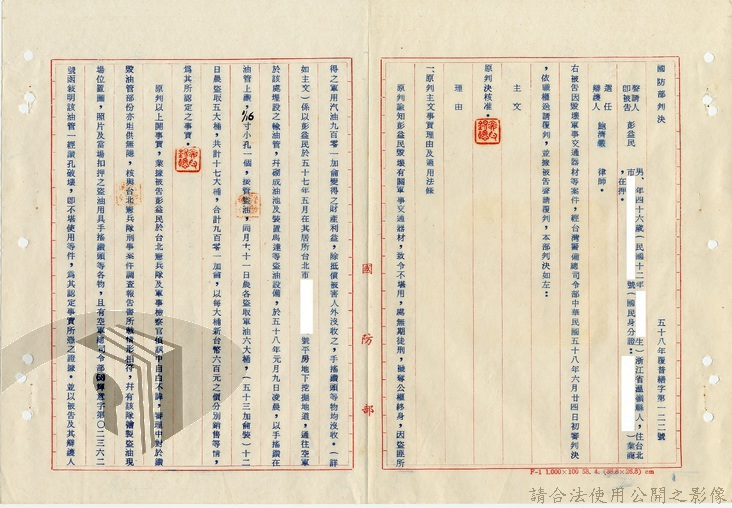 國防部判決
五十八年覆普繕字第一二二號
聲請人
即被告 彭益民 男、年四十六歲(民國十二年 生)浙江省溫嶺縣人,住台北
市 號(國民身分證: )業商
,在押。
選任
辯護人 鮑濟羲 律師。
右被告因毀壞軍事交通器材等案件,經台灣警備總司令部中華民國五十八年六月廿四日初審判決
,依職權送請覆判,並據被告聲請覆判,本部判決如左:
主文
原判決核准。
理由
一、原判主文事實理由及適用法條
原判論知彭益民毀壞有關軍事交通器材,致令不堪用,處無期徒刑,褫奪公權終身,因盜匪所
國防部
得之軍用汽油九百零一加侖變得之財產利益,除抵償被害人外沒收之,手搖鑽頭等物均沒收。(詳
如主文)係以彭益民於五十七年五月在其居所台北市 號平房地下挖掘地道,通往空軍
於該處埋設之輸油管,幷砌成油池及裝置馬達等盜油設備,於五十八年元月九日凌晨,以手搖鑽在
油管上鑽,1/16寸小孔一個,接管盜油,同月十、十一日晨各盜取軍油六大桶,(五十三加侖裝)十二
日晨盜取五大桶,共計十七大桶,合計九百零一加侖,以每大桶新台幣六百元之價分別銷售等情,
為其所認定之事實。
原判以上開事實,業據被告彭益民於台北憲兵隊及軍事檢察官偵訊中自白不諱,審理中對於鑽
毀油管部份亦坦供無隱,核與台北憲兵隊刑事案件調查報告書所載情形相符,幷有該隊繪製盜油現
場位置圖,照片及當場扣押之盜油用具手搖鑽頭等各物,且有空軍總司令部 字第〇二三六二
號函敘明該油管一經鑽孔破壞,即不堪使用等件,為其認定事實所憑之證據。並以被告及其辯護人
P-1 1,000×100 58. 4. (38.8×26.8) cm
請合法使用公開之影像